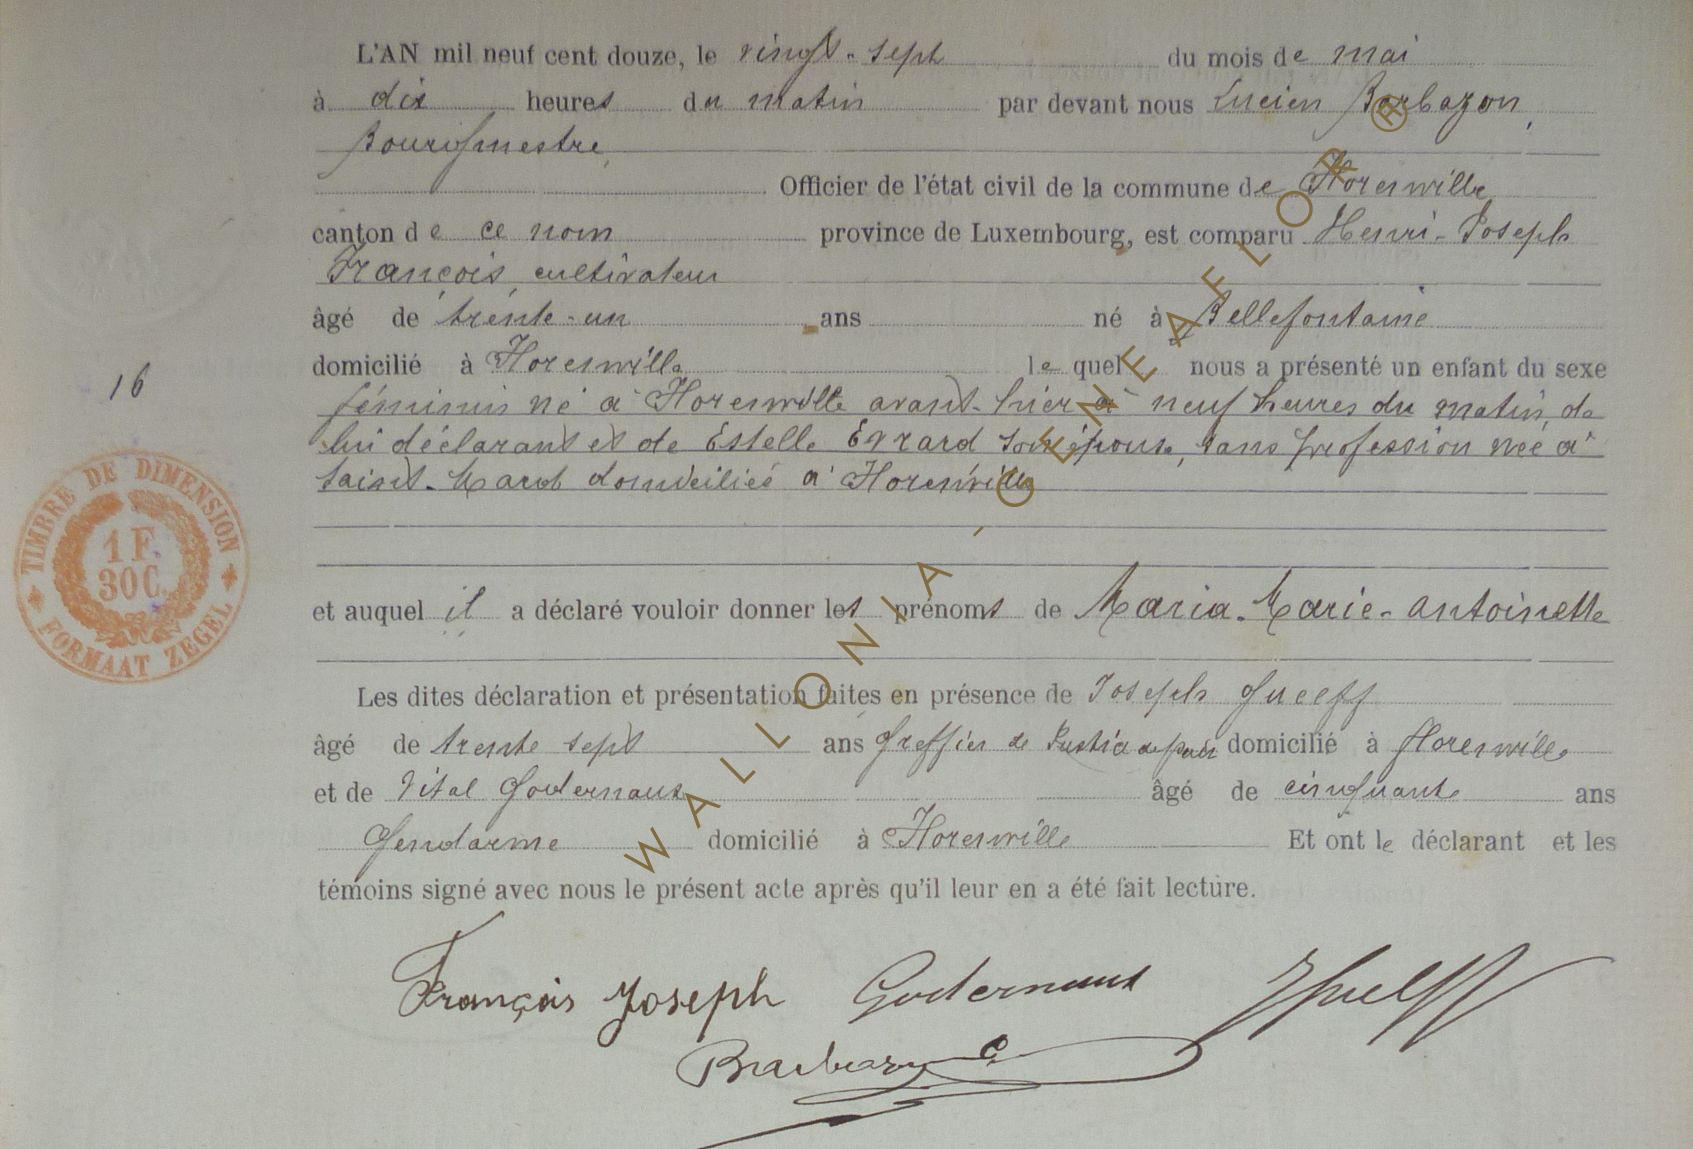 L'AN mil neuf cent douze, le vingt-sept du mois de mai
à dix heures du matin par devant nous Lucien Barbazon,
Bourgmestre,
Officier de l'état civil de la commune de Florenville
canton de ce nom province de Luxembourg, est comparu Henri-Joseph
François, cultivateur
âgé de trente-un ans né à Bellefontaine
domicilié à Florenville lequel nous a présenté un enfant du sexe
féminin né à Florenville avant-hier à neuf heures du matin, de
lui déclarant et de Estelle Evrard son épouse, sans profession née à
Saint-Mard domiciliée à Florenville
16
TIMBRE DE DIMENSION
1 F.
30 C.
FORMAAT ZEGEL
et auquel il a déclaré vouloir donner les prénoms de Maria-Marie-Antoinette
Les dites déclaration et présentation faites en présence de Joseph Gueff
âgé de trente sept ans Greffier de Justice de paix domicilié à Florenville
et de Vital Godernaux âgé de cinquante ans
Gendarme domicilié à Florenville Et ont le déclarant et les
témoins signé avec nous le présent acte après qu'il leur en a été fait lecture.
François Joseph Godernaux JGueff
Barbazon
WALLONIA-GENEAFLOR ®